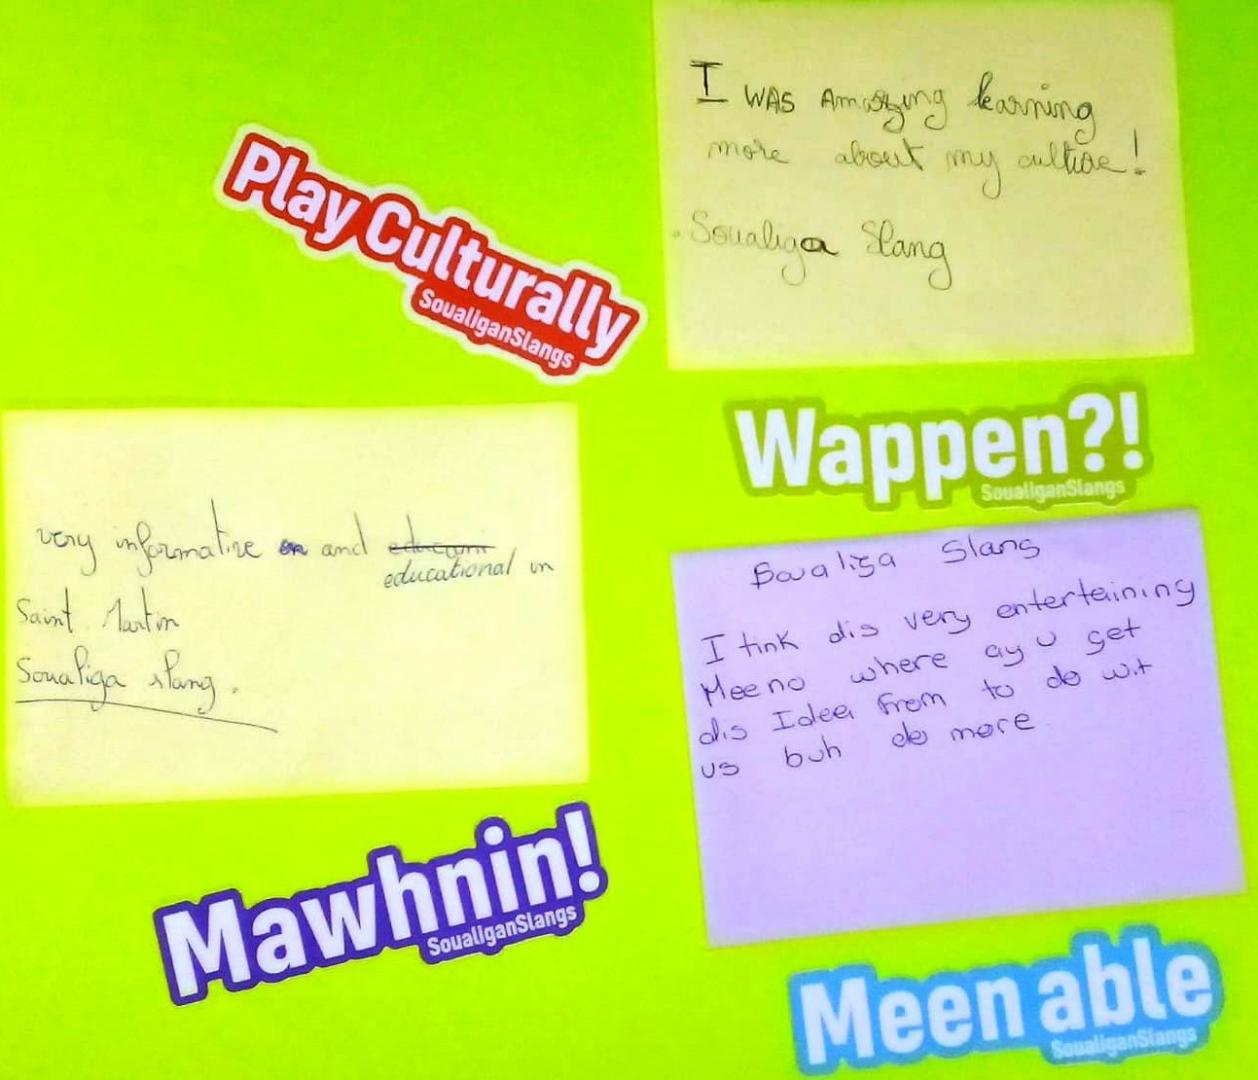 I WAS Amazing learning
more about my culture!
. Soualiga Slang
Play Culturally
SoualiganSlangs
Wappen?!
SoualiganSlangs
very informative and
educational in
Saint Martin
Soualiga slang.
Soualiga Slang
I tink dis very entertaining
Meeno where ay u get
dis Idea from to do wit
us buh do more
Mawhnin!
SoualiganSlangs
Meen able
SoualiganSlangs